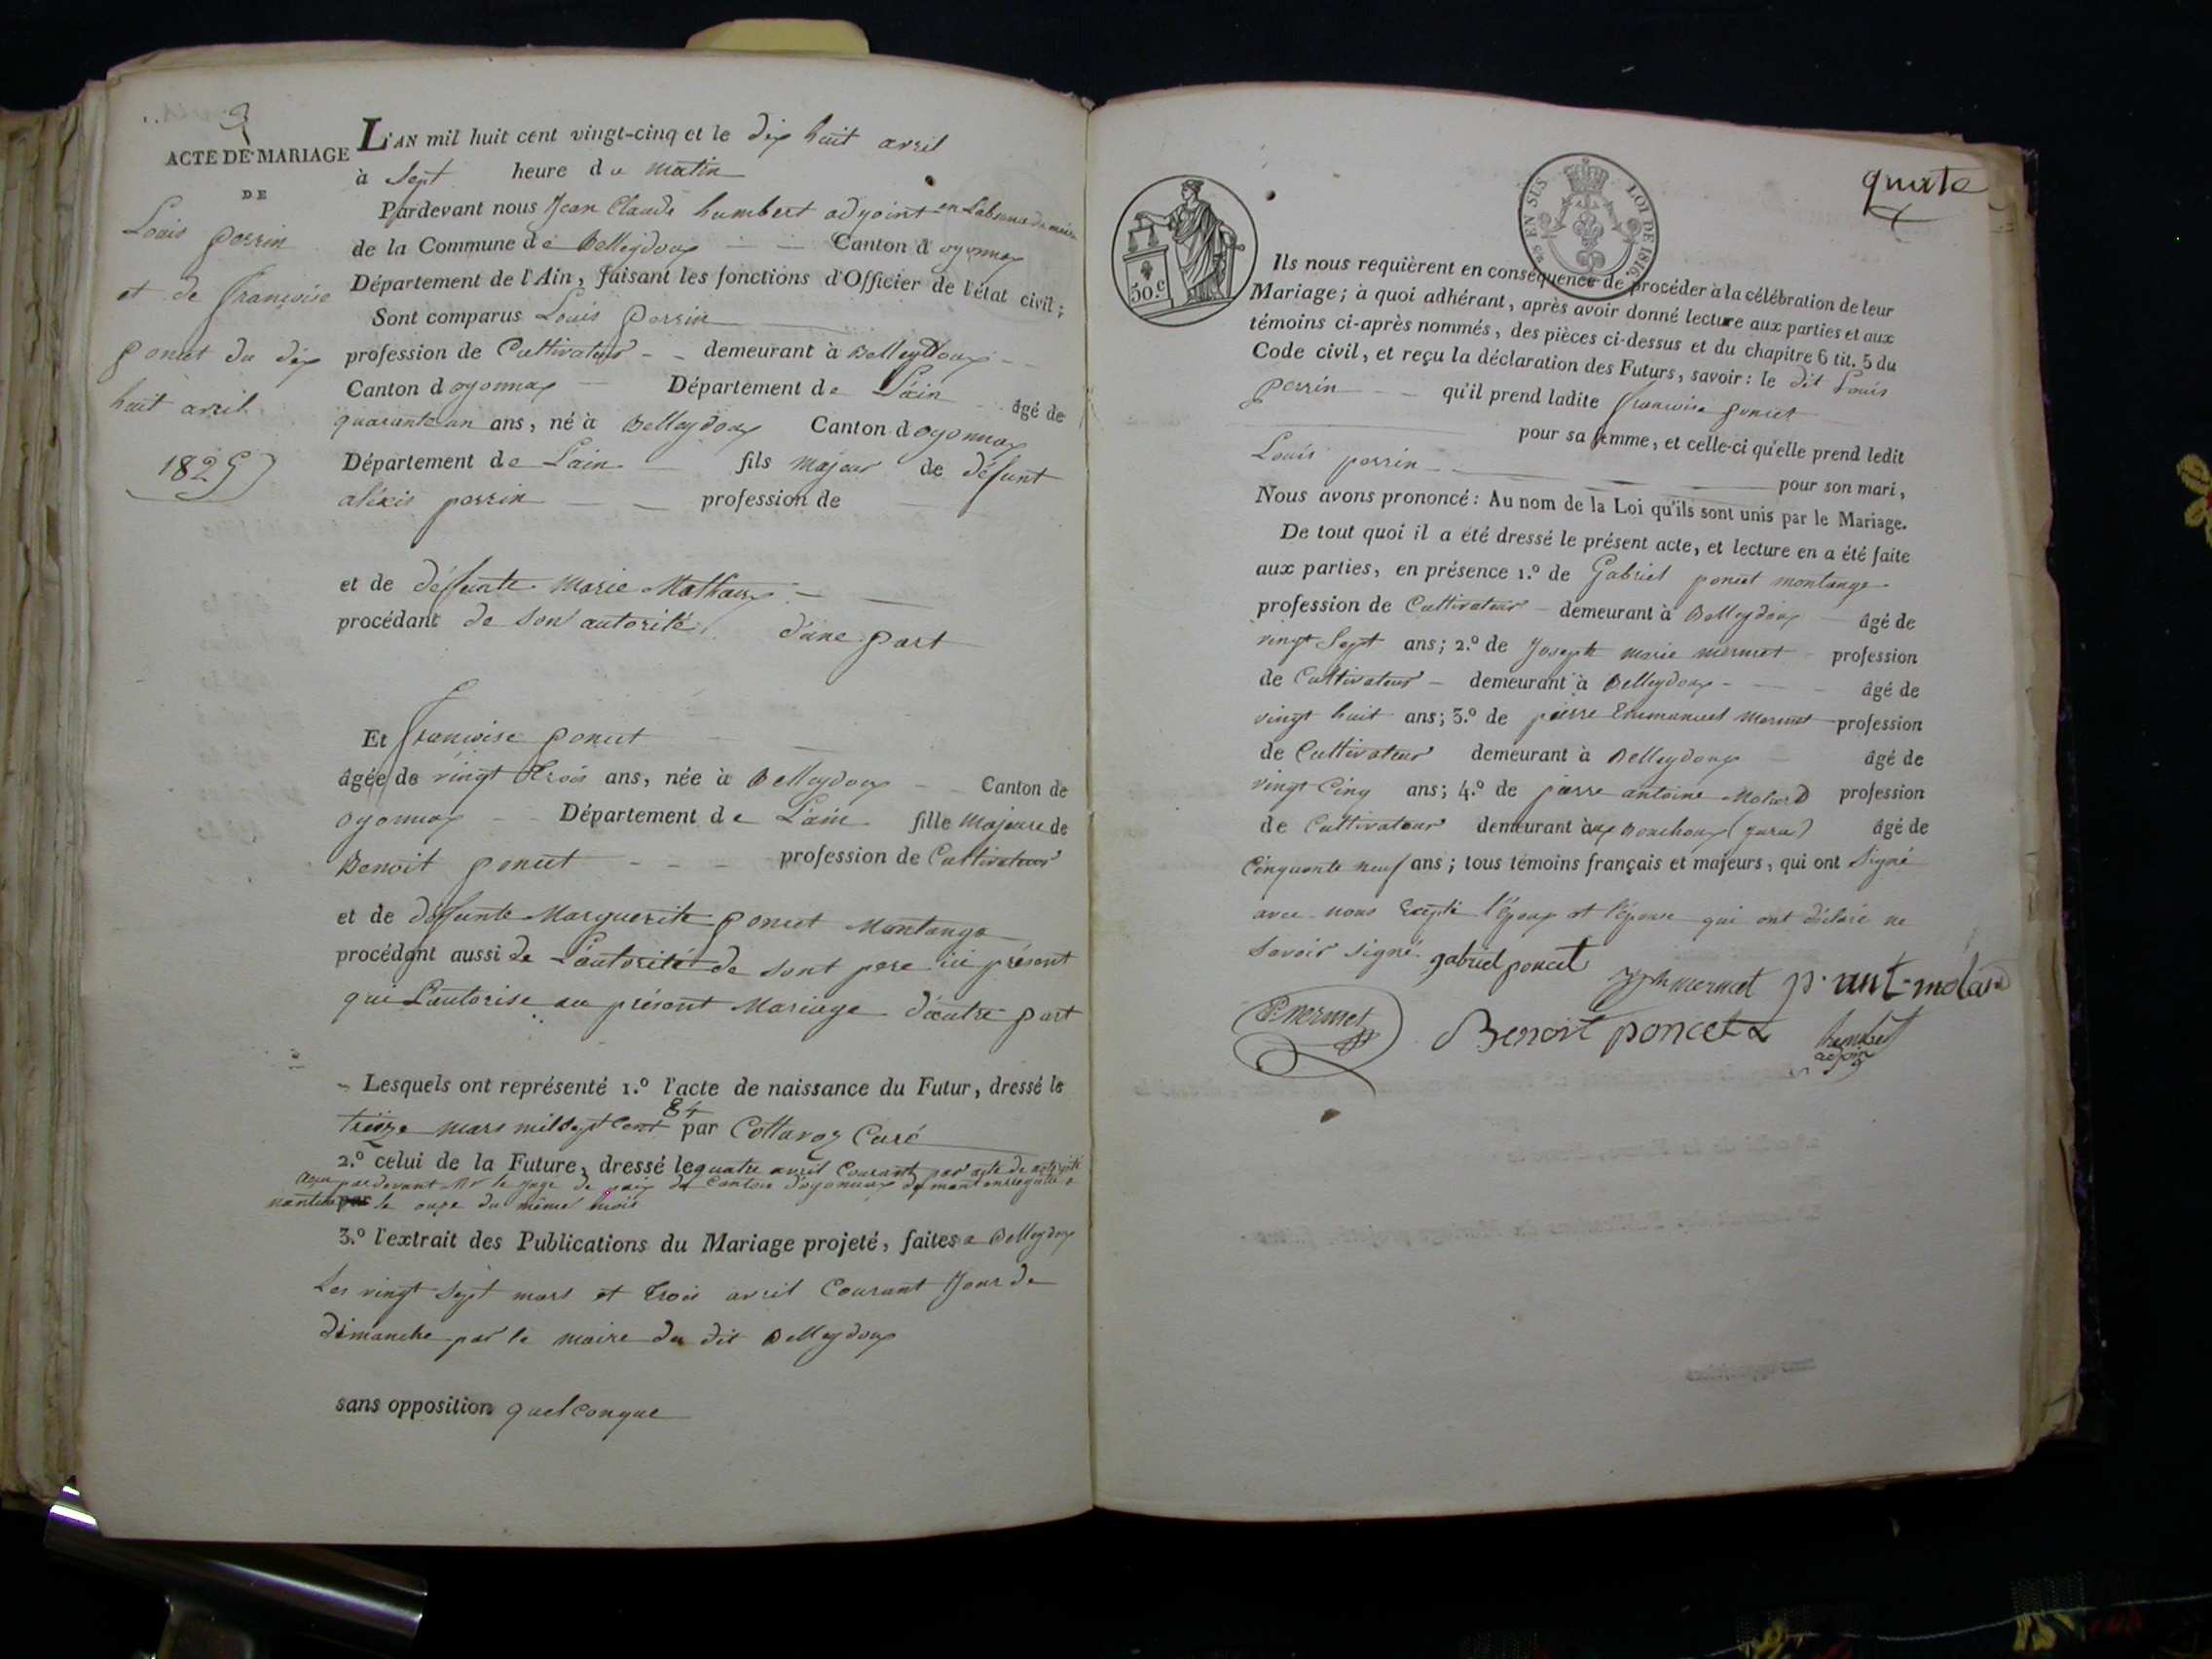 3
ACTE DE MARIAGE
DE
Louis perrin
et de françoise
poncet du dix
huit avril
1825
L'AN mil huit cent vingt-cinq et le dix huit avril
à Sept heure du matin
Pardevant nous Jean Claude humbert adjoint en Labsence du maire
de la Commune de Belleydoux Canton d'oyonnax
Département de l'Ain, faisant les fonctions d'Officier de l'état civil;
Sont comparus Louis Perrin
profession de Cultivateur demeurant à Belleydoux
Canton d'oyonnax Département de L'ain âgé de
quarante un ans, né à Belleydoux Canton d'oyonnax
Département de L'ain fils majeur de défunt
aléxis perrin profession de
et de défunte Marie Mathieu
procédant de son autorité d'une part
Et françoise poncet
âgée de vingt trois ans, née à Belleydoux Canton de
oyonnax Département de L'ain fille Majeure de
Benoit poncet profession de Cultivateur
et de défunte Marguerite poncet Montange
procédant aussi de L'autorité de sont pere ici présent
qui L'autorise au présent Mariage d'autre part
Lesquels ont représenté 1.º l'acte de naissance du Futur, dressé le
treize mars mil sept cent 84 par Cottavoz Curé
2.º celui de la Future, dressé le quatre avril Courant par acte de notoriété
pardevant Mr le juge de paix du Canton d'oyonnax
le onze du même mois
3.º l'extrait des Publications du Mariage projeté, faites a Belleydoux
Les vingt sept mars et trois avril Courant Jour de
dimanche par le maire du dit Belleydoux
sans opposition quelconque
quate
50.c
EN SUS
LOI DE 1816.
Ils nous requièrent en conséquence de procéder à la célébration de leur
Mariage; à quoi adhérant, après avoir donné lecture aux parties et aux
témoins ci-après nommés, des pièces ci-dessus et du chapitre 6 tit. 5 du
Code civil, et reçu la déclaration des Futurs, savoir: le dit Louis
perrin qu'il prend ladite françoise poncet
pour sa femme, et celle-ci qu'elle prend ledit
Louis perrin pour son mari,
Nous avons prononcé: Au nom de la Loi qu'ils sont unis par le Mariage.
De tout quoi il a été dressé le présent acte, et lecture en a été faite
aux parties, en présence 1.º de Gabriel poncet montange
profession de Cultivateur demeurant à Belleydoux âgé de
vingt Sept ans; 2.º de Joseph marie mermet profession
de Cultivateur demeurant à Belleydoux âgé de
vingt huit ans; 3.º de pierre Emmanuel Mermet profession
de Cultivateur demeurant à Belleydoux âgé de
vingt Cinq ans; 4.º de pierre antoine Molard profession
de Cultivateur demeurant aux Bouchoux (jura) âgé de
Cinquante neuf ans; tous témoins français et majeurs, qui ont Signé
avec nous Excepté l'époux et l'épouse qui ont déclaré ne
Savoir signé. gabriel poncet
mermet p. ant. molard
P. mermet Benoit poncet humbert
adjoin